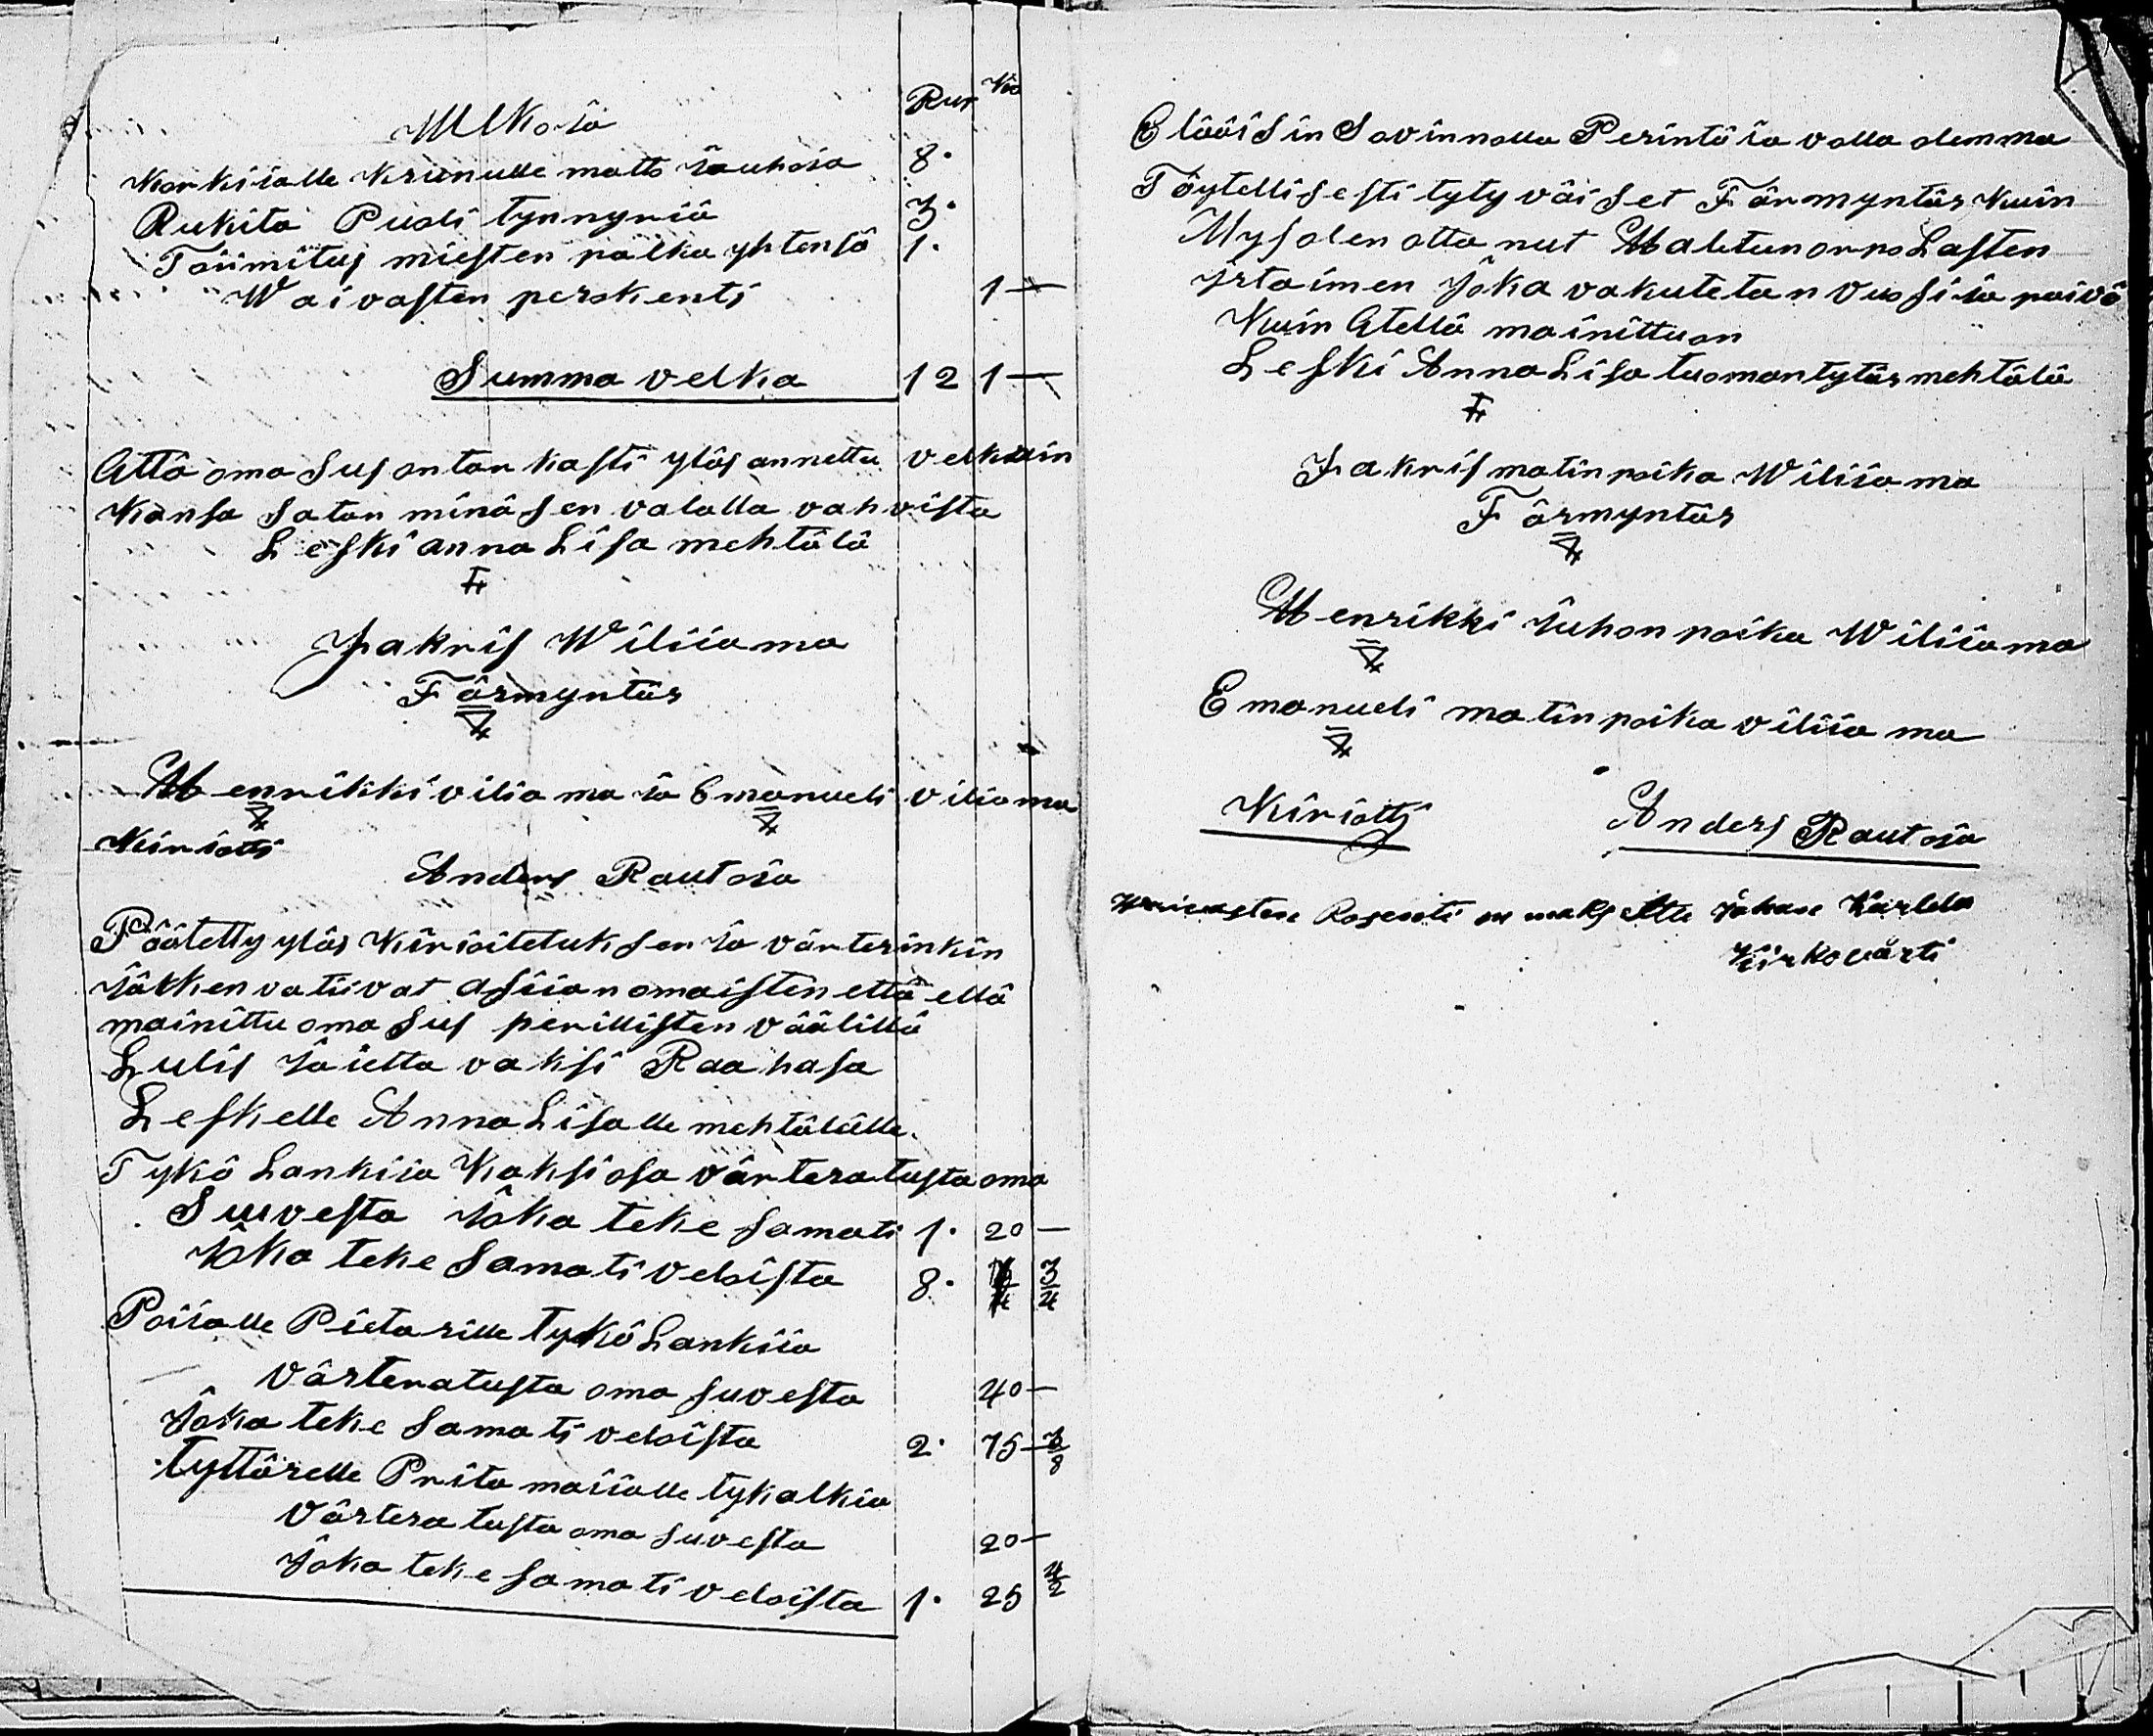 Rup Ko
Ulkosia
Korkialle Krunulle matto Jauhoia 8.
Rukita Puoli tynnyriä 3.
Toimitus miesten palka yhtensä 1.
Waivasten perskenti 1 —
Summa velka 12 1 —
Että oma Sus on tarkasti ylös annettu velkuin
Kansa Satan minä sen valalla vahvista
Leski anna Lisa mehtälä
Jakris Wiliiama
Färmyntär
Henrikki vilia ma ia Emanueli viliama
Kiriotti
Anders Rautoia
Päätetty ylös Kirioitetuksen ia värterinkin
Jälkken vatiivat asiian omaisten että ellä
mainittu oma Sus perillisten väälillä
Lulis Jaietta vaksi Raahasa
Leskelle Anna Lisalle mehtälälle
Tykö Lankiia Kaksi osa värteratusta oma
Suuvesta Joka teke samati 1. 20 —
Joka teke Samati veloista 8. 3/4
Poiialle Pietarille tykö Lankiia
värteratusta oma suvesta 40 —
Joka teke Samati veloista 2. 75 — 3/8
tyttärelle Prita maiialle tykalkia
värteratusta oma suvesta 20 —
Joka teke samati veloista 1. 25
Elääisin Sovinnolla Perintöia valla olemma
Täytellisesti tytyväiset Färmyntär Kuin
Mys olen otta nut Haltun orpo Lasten
Irtaimen Joka vakutetan vuosi ia paivä
Kuin Etellä mainittu on
Leski Anna Lisa tuomantytär mehtälä
Jakris matinpoika Wiliiama
Färmyntär
Henrikki Juhonpoika Wiliiama
Emanueli matinpoika viliia ma
Kiriotti Anders Rautoia
Waivasten Rosenti on maksettu Johan Karlela
Kirkovärti